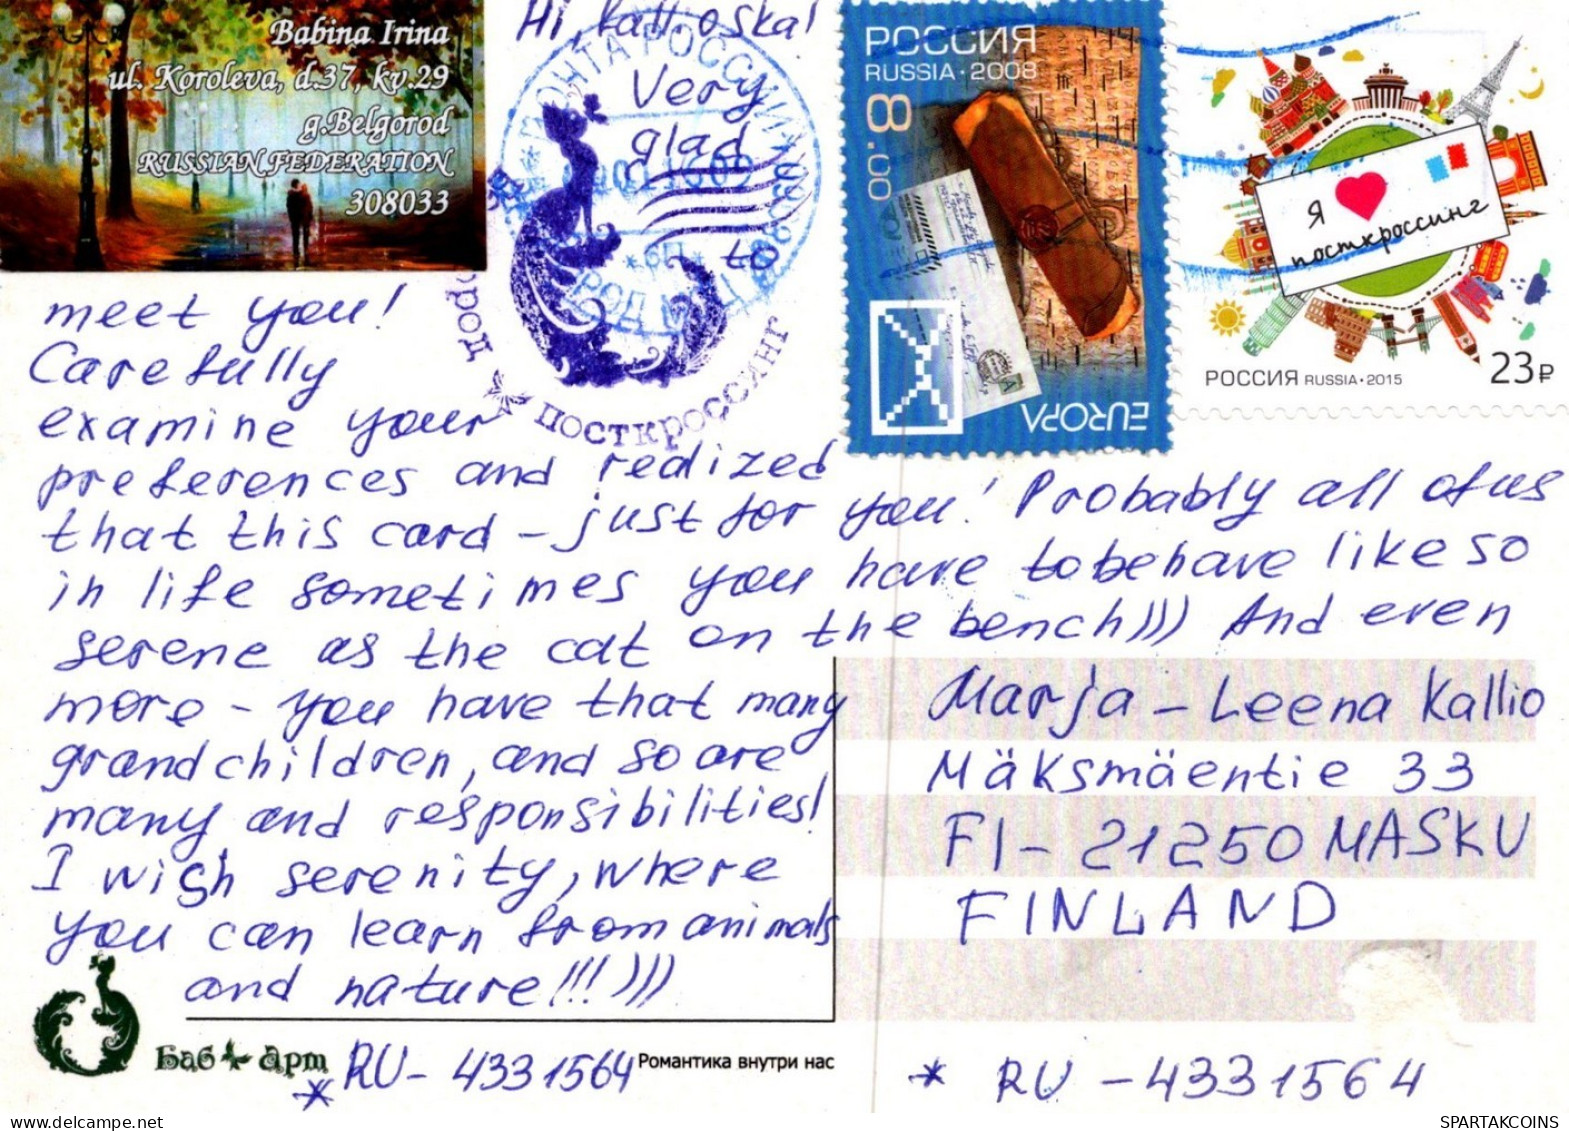 Babina Irina
ul. Koroleva, d.37, kv.29
g.Belgorod
RUSSIAN FEDERATION
308033
Hi, kallioska!
Very
glad
to
meet you!
Carefully
examine your
preferences and realized
that this card - just for you! Probably all of us
in life sometimes you have to behave like so
serene as the cat on the bench))) And even
more - you have that many
grandchildren, and so are
many and responsibilities!
I wish serenity, where
you can learn from animals
and nature!!!)))
ПОЧТА РОССИИ
посткроссинг
РОССИЯ
RUSSIA • 2008
8.00
EUROPA
Я
посткроссинг
РОССИЯ RUSSIA • 2015
23₽
Marja - Leena Kallio
Mäksmäentie 33
FI - 21250 MASKU
FINLAND
Баб Арт
* RU - 4331564
Романтика внутри нас
* RU - 4331564
SPARTAKCOINS
www.delcampe.net